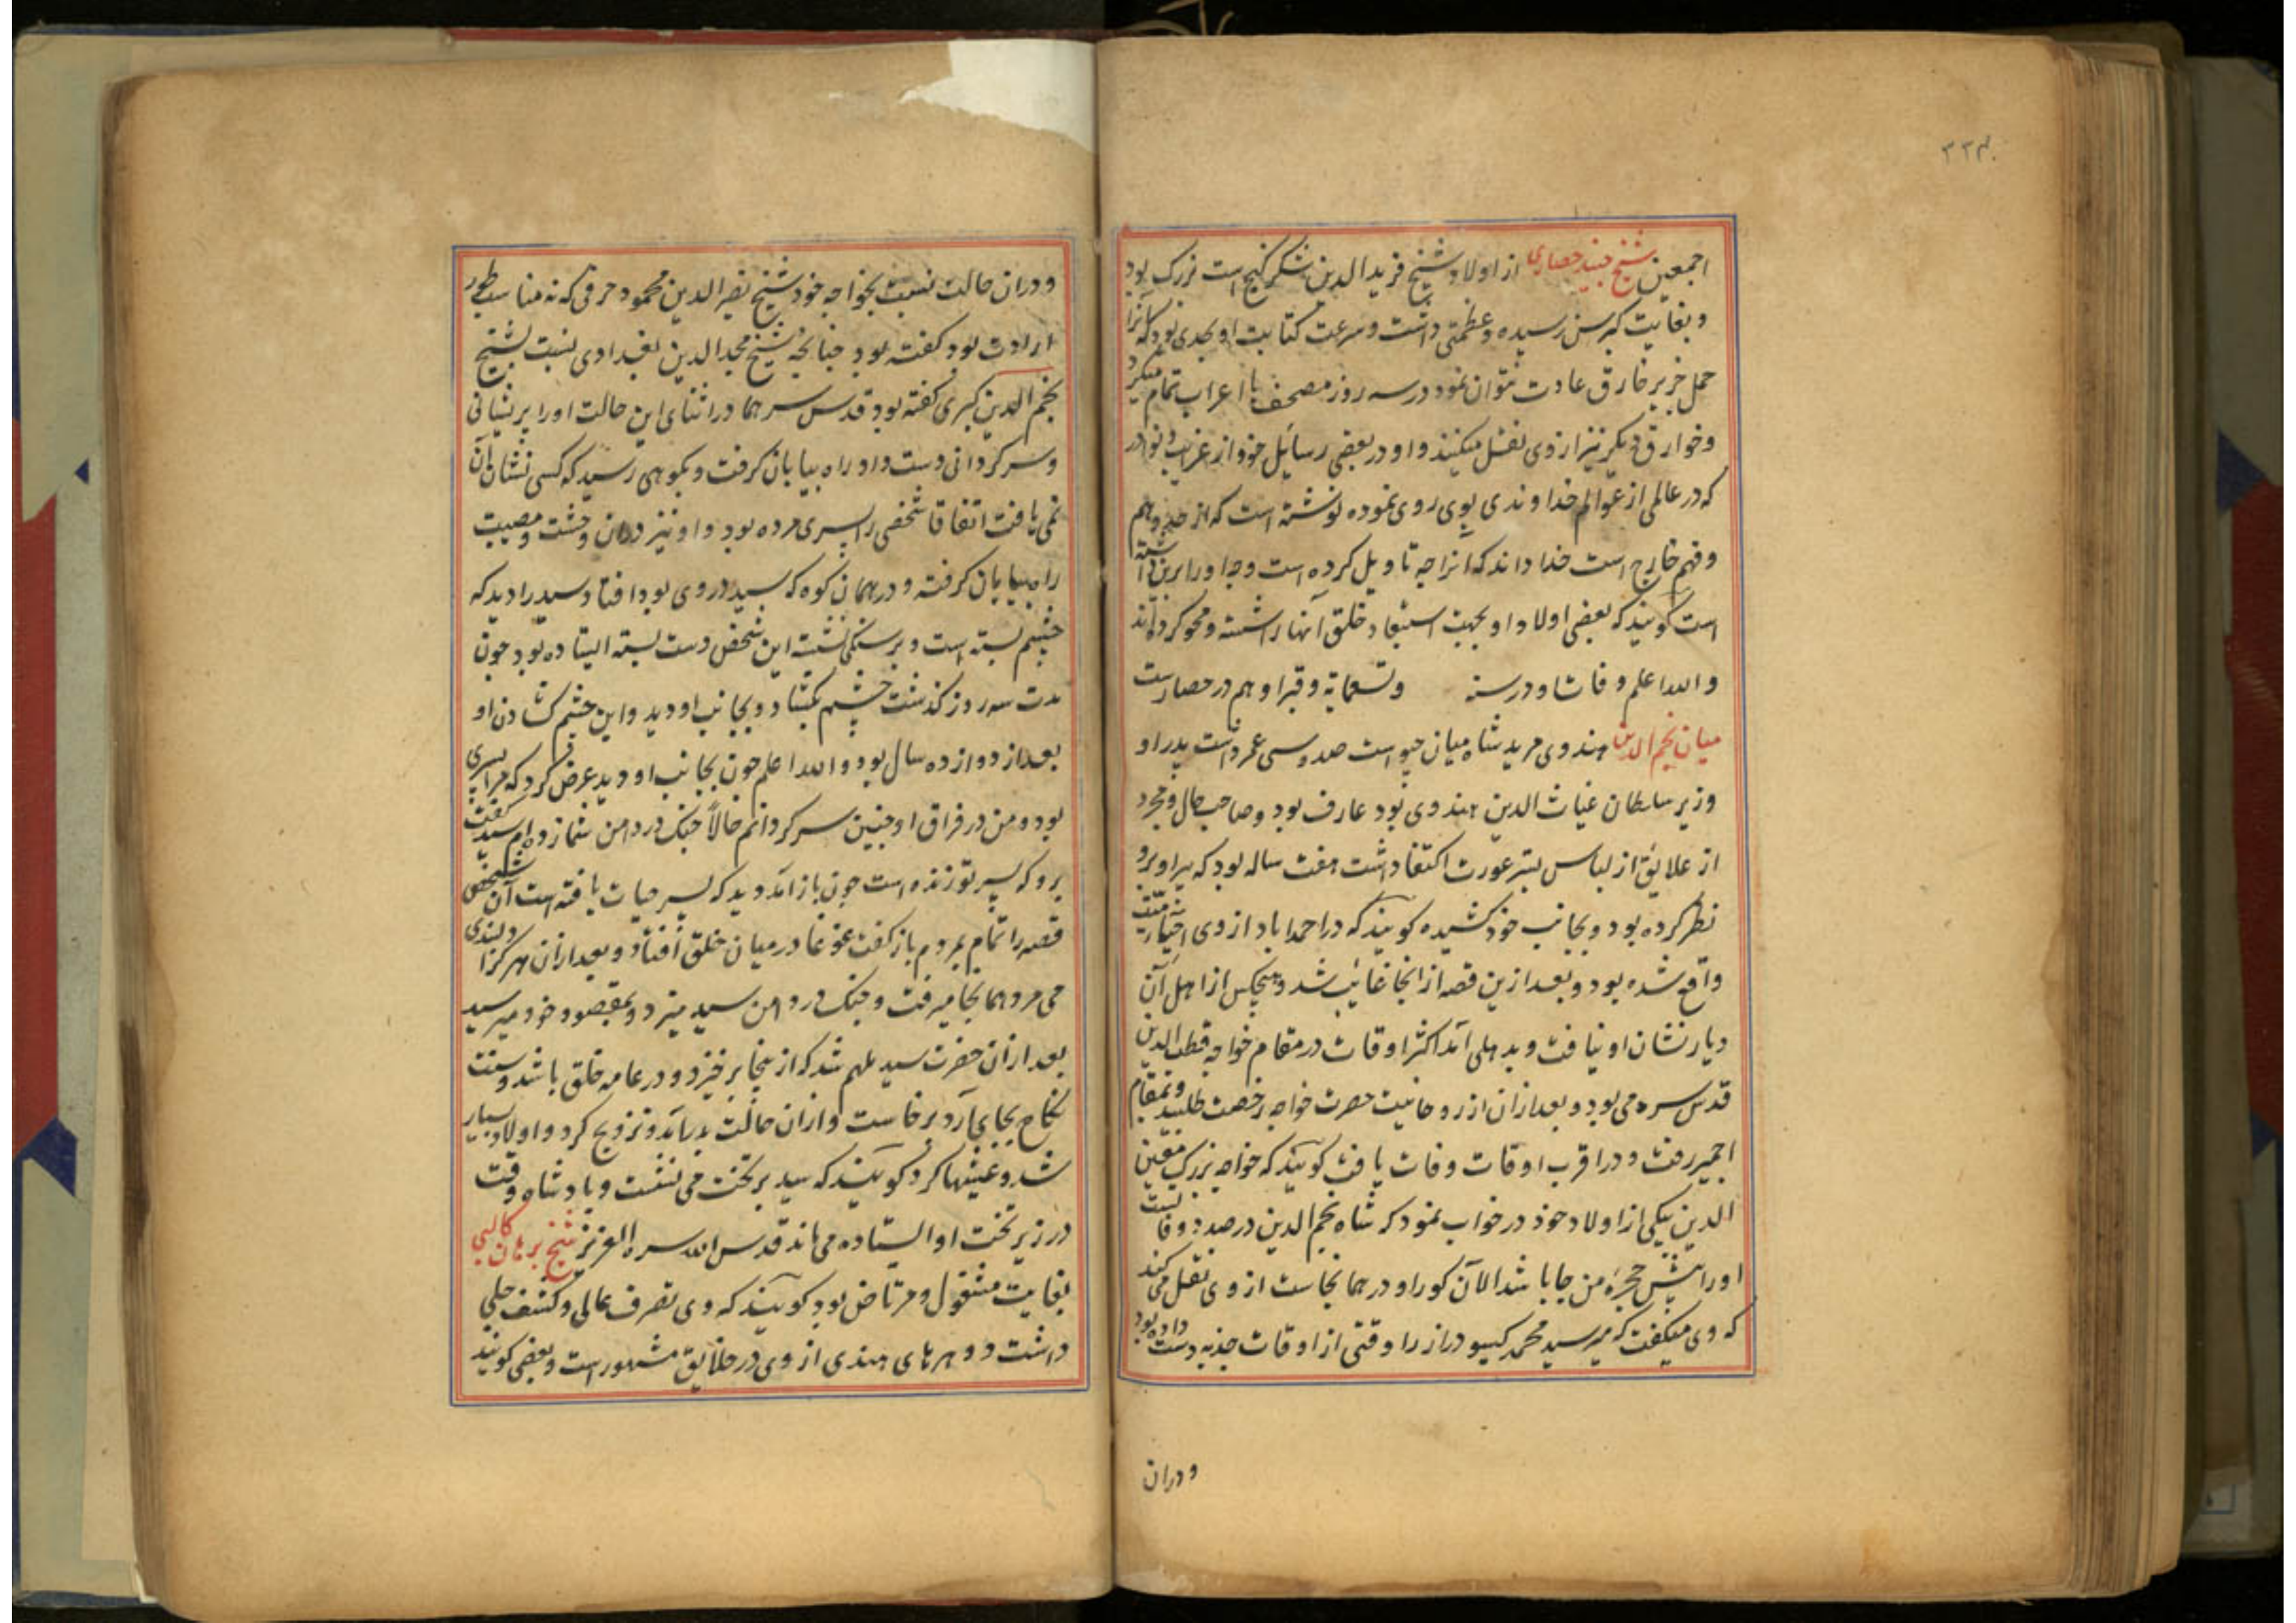 ۲۳۴
اجمعین شیخ جنید حصاری از اولاد شیخ فرید الدین شکر کنج است بزرک بود
و بغایت کبر سن رسیده و عظمتی داشت و سرعت کتابت او بحدی بود که آنرا
حمل جز بر خارق عادت نتوان نمود در سه روز مصحف با اعراب تمام میکرد
و خوارق دیکر نیز از وی نقل میکنند و او در بعضی رسائل خود از غرایب و نوادر
که در عالمی از عوالم خداوندی بوی روی نموده نوشته است که از حد وهم
و فهم خارج است خدا داند که انرا چه تاویل کرده است و چه او را برین داشته
است کویند که بعضی اولاد او بجهت استبعاد خلق آنها را شسته و محو کرده اند
و الله اعلم وفات او در سنه وتسعمایة و قبر او هم در حصار است
میان نجم الدین مندوی مرید شاه میان جیو است صد و سی عمر داشت پدر او
وزیر سلطان غیاث الدین مندوی بود عارف بود و صاحب حال و مجرد
از علایق از لباس بستر عورت اکتفا داشت هفت ساله بود که پیر او برو
نظر کرده بود و بجانب خود کشیده کویند که در احمداباد از وی احیاء میت
واقع شده بود و بعد ازین قصه از انجا غائب شد و هیچکس از اهل آن
دیار نشان او نیافت و بدهلی آمد اکثر اوقات در مقام خواجه قطب الدین
قدس سره می بود و بعد ازان از روحانیت حضرت خواجه رخصت طلبید و بمقام
اجمیر رفت و در اقرب اوقات وفات یافت کویند که خواجه بزرک معین
الدین بیکی از اولاد خود در خواب نمود که شاه نجم الدین در صدد وفات است
او را پیش حجره من جا باشد الآن کور او در همانجاست از وی نقل می کنند
که وی میکفت که میر سید محمد کیسو دراز را وقتی از اوقات جذبه دست داده بود
ودران
ودران حالت نسبت بخواجه خود شیخ نصیر الدین محمود حرفی که نه مناسب طور
ارادت بود کفته بود چنانچه شیخ مجد الدین بغدادی نسبت بشیخ
نجم الدین کبری کفته بود قدس سرهما در اثنای این حالت او را پریشانی
و سرکردانی دست داد و راه بیابان کرفت و بکوهی رسید که کسی نشان آن
نمی یافت اتفاقا شخصی را پسری مرده بود و او نیز دران وحشت و مصیبت
راه بیابان کرفته و در همان کوه که سید در وی بود افتاد سید را دید که
چشم بسته است و بر سنکی نشسته این شخص دست بسته ایستاده بود چون
مدت سه روز کذشت چشم بکشاد و بجانب او دید و این چشم کشادن او
بعد از دوازده سال بود و الله اعلم چون بجانب او دید عرض کرد که مرا پسری
بود و من در فراق او چنین سر کردانم حالا چنک در دامن شما زده ام سید کفت
برو که پسر تو زنده است چون باز آمد دید که پسر حیات یافته است آن شخص
قصه را تمام بمردم باز کفت غوغا در میان خلق افتاد و بعد ازان هر کرا فرزندی
می مرد همانجا میرفت و چنک در دامن سید میزد و بمقصود خود میرسید
بعد ازان حضرت سید ملهم شد که از اینجا برخیزد و در عامه خلق باشد و سنت
نکاح بجای آرد برخاست و ازان حالت بدر آمد و تزویج کرد و اولاد بسیار
شد و عیشها کرد کویند که سید بر تخت می نشست و پادشاه وقت
در زیر تخت او ایستاده می ماند قدس الله سره العزیز شیخ برهان کالپی
بغایت مشغول و مرتاض بود کویند که وی تصرف عالی و کشف جلی
داشت دوهرهای هندی از وی در خلایق مشهور است و بعضی کویند